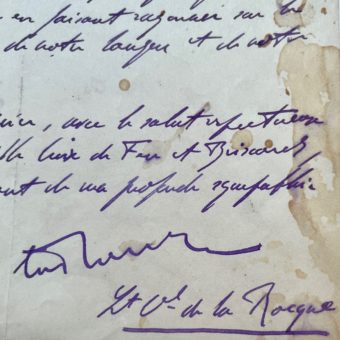 en faisant rayonner sur le
de notre langue et de notre
, avec le salut respectueux
de Feu et Briscards
de ma profonde sympathie
Lt Cel de la Rocque